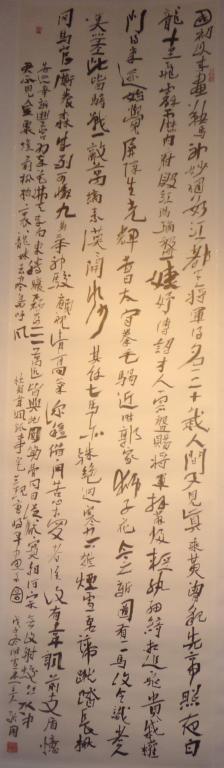 國初以來畫鞍馬神妙獨數江都王將軍得名三十載人間又見真乘黃曾貌先帝照夜白
龍池十日飛霹靂內府殷紅瑪瑙盤婕妤傳詔才人索盤賜將軍拜舞歸輕紈細綺相追飛貴戚權
門得筆跡始覺屏障生光輝昔日太宗拳毛騧近時郭家獅子花今之新圖有二馬復令識者久
嘆嗟此皆騎戰一敵萬縞素漠漠開風沙其餘七匹亦殊絕迥若寒空動煙雪霜蹄蹴踏長楸
間馬官廝養森成列可憐九馬爭神駿顧視清高氣深穩借問苦心愛者誰後有韋諷前支遁憶
昔巡幸新豐宮翠華拂天來向東騰驤磊落三萬匹皆與此圖筋骨同自從獻寶朝河宗無復射蛟江水中
君不見金粟堆前松柏裏龍媒去盡鳥呼風 杜甫韋諷錄事宅觀曹將軍畫馬圖